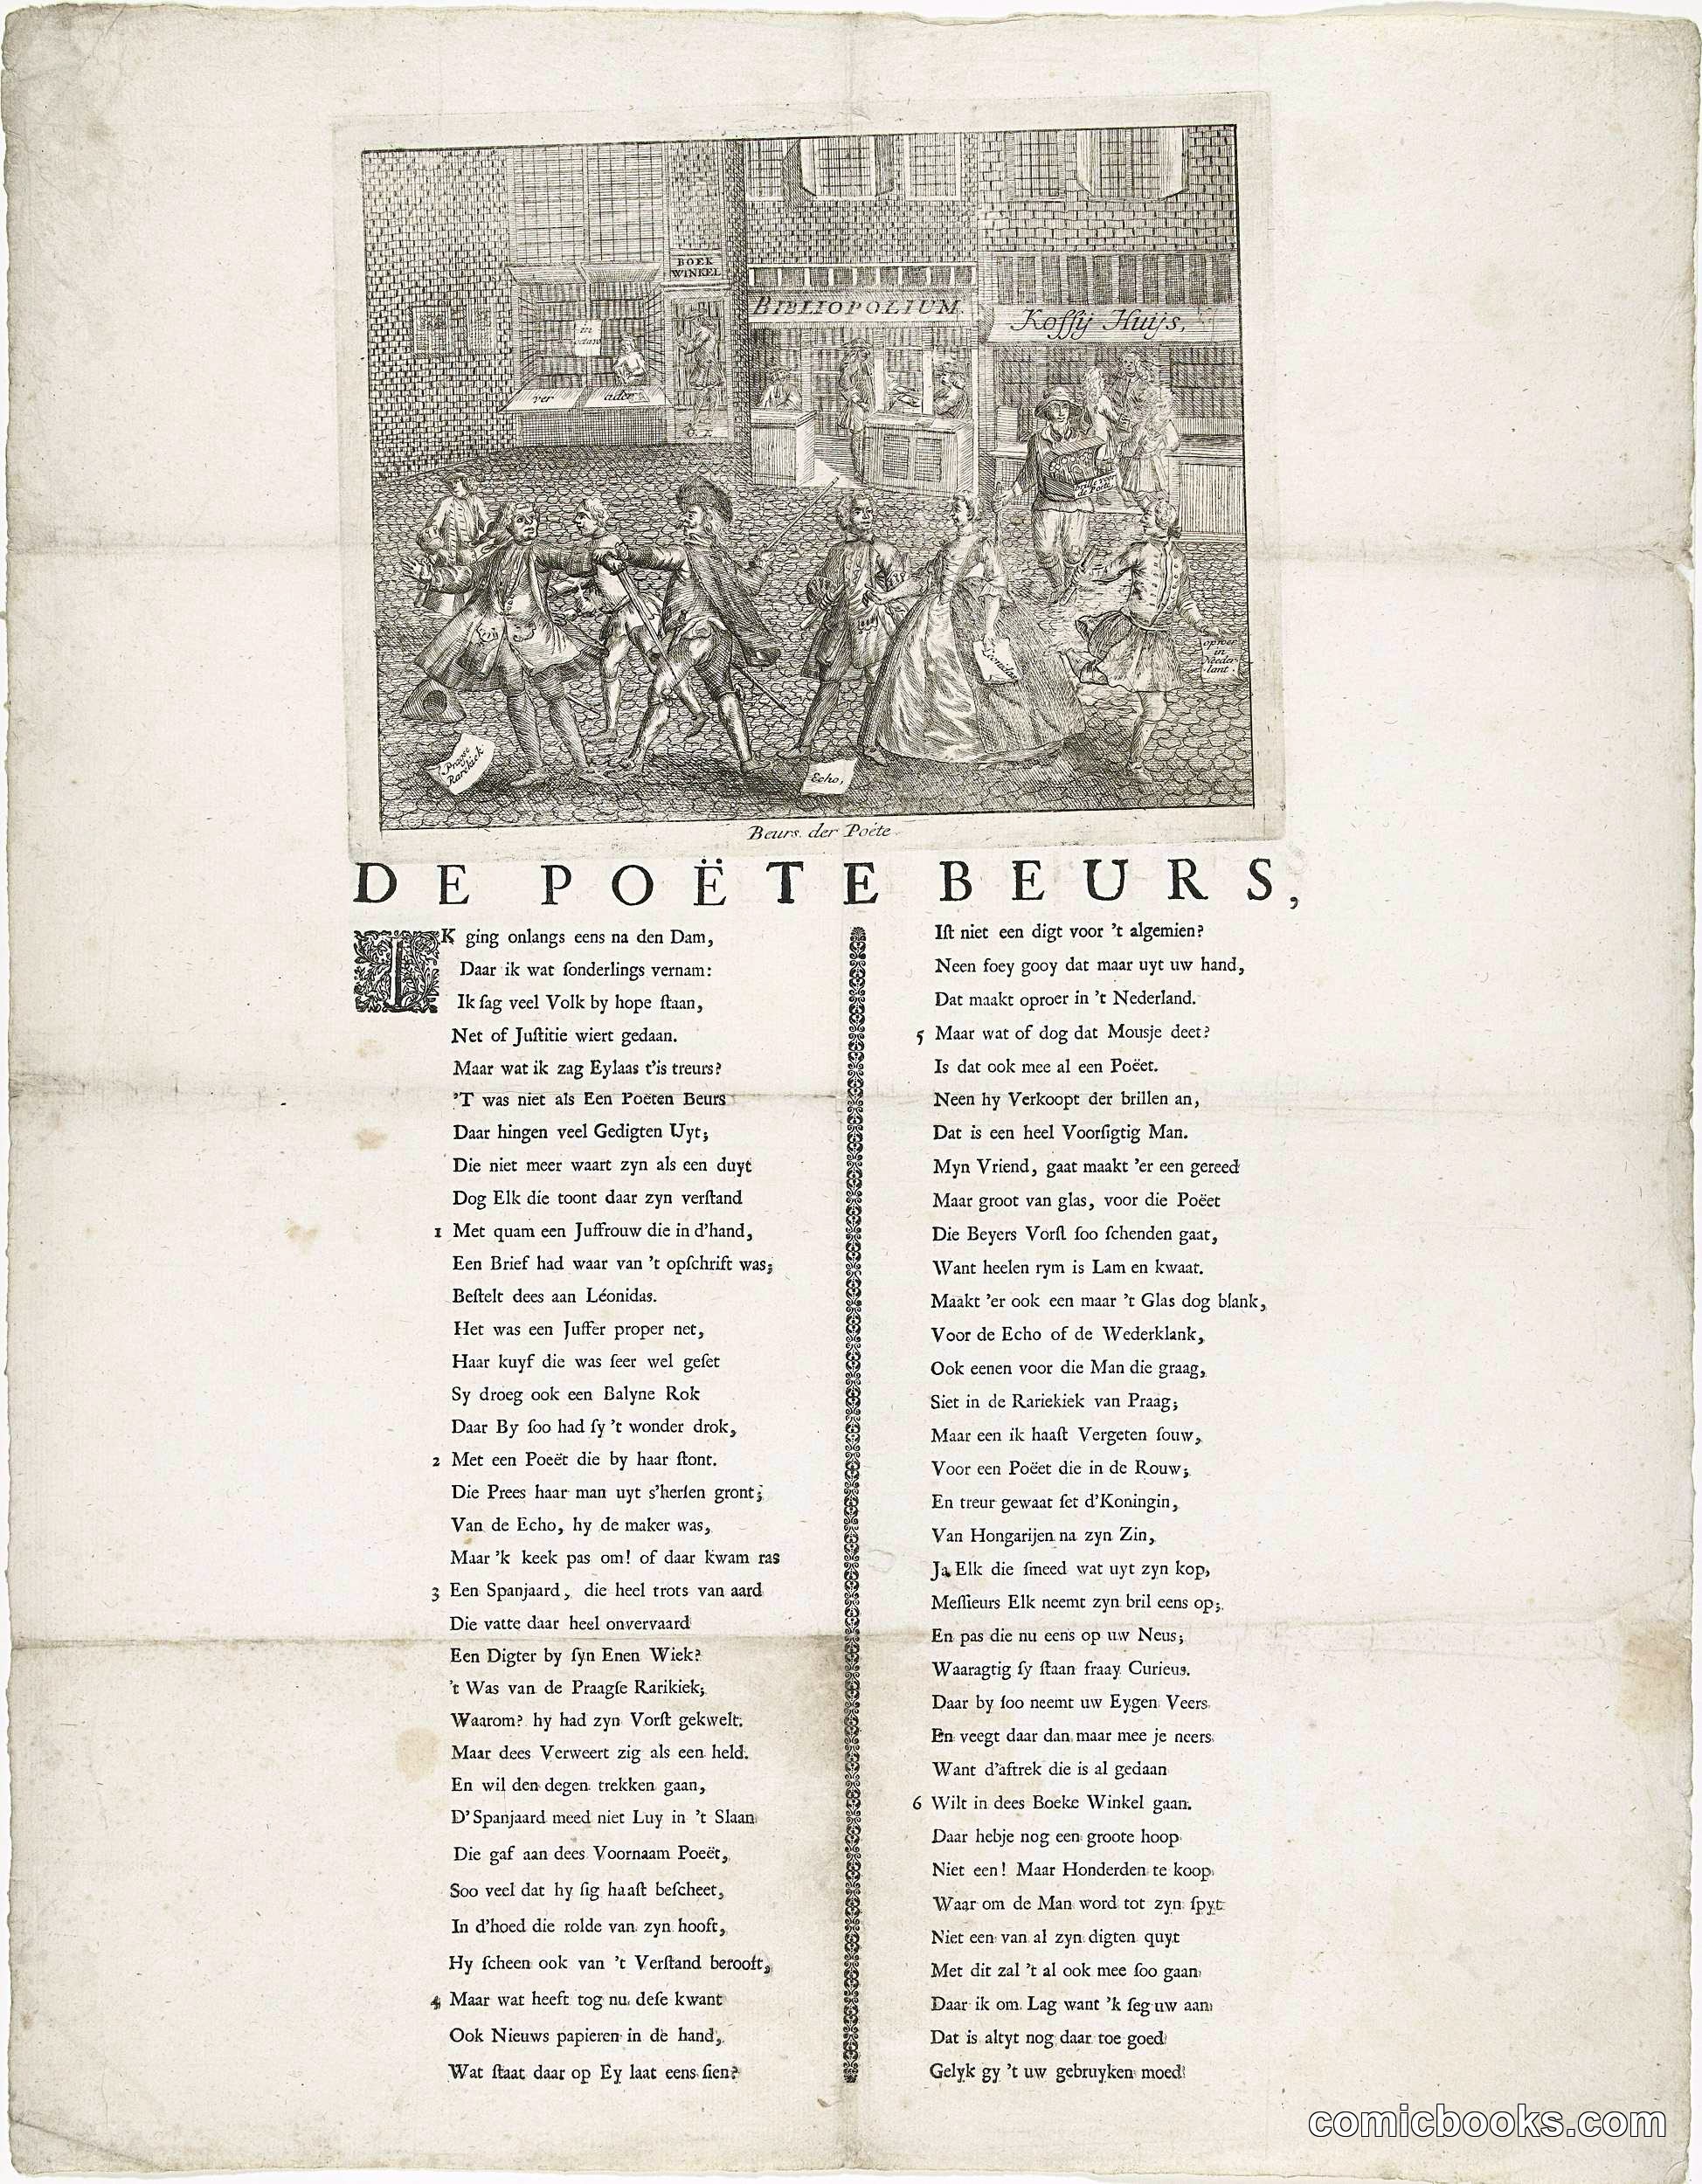 BOEK
WINKEL
BIBLIOPOLIUM
Koffij Huijs,
in
octavo
ver
Leonidas
oproer
in
Needer
lant.
Praagse
Rarekiek
Echo,
Beurs der Poëte
DE POËTE BEURS,
IK ging onlangs eens na den Dam,
Daar ik wat ſonderlings vernam:
Ik ſag veel Volk by hope ſtaan,
Net of Juſtitie wiert gedaan.
Maar wat ik zag Eylaas t'is treurs?
'T was niet als Een Poëten Beurs
Daar hingen veel Gedigten Uyt;
Die niet meer waart zyn als een duyt
Dog Elk die toont daar zyn verſtand
1 Met quam een Juffrouw die in d'hand,
Een Brief had waar van 't opſchrift was;
Beſtelt dees aan Léonidas.
Het was een Juffer proper net,
Haar kuyf die was ſeer wel geſet
Sy droeg ook een Balyne Rok
Daar By ſoo had ſy 't wonder drok,
2 Met een Poeët die by haar ſtont.
Die Prees haar man uyt s'herſen gront;
Van de Echo, hy de maker was,
Maar 'k keek pas om! of daar kwam ras
3 Een Spanjaard, die heel trots van aard
Die vatte daar heel onvervaard
Een Digter by ſyn Enen Wiek?
't Was van de Praagſe Rarikiek;
Waarom? hy had zyn Vorſt gekwelt.
Maar dees Verweert zig als een held.
En wil den degen trekken gaan,
D'Spanjaard meed niet Luy in 't Slaan
Die gaf aan dees Voornaam Poeët,
Soo veel dat hy ſig haaſt beſcheet,
In d'hoed die rolde van zyn hooft,
Hy ſcheen ook van 't Verſtand berooft,
4 Maar wat heeft tog nu deſe kwant
Ook Nieuws papieren in de hand,
Wat ſtaat daar op Ey laat eens ſien?
Iſt niet een digt voor 't algemien?
Neen foey gooy dat maar uyt uw hand,
Dat maakt oproer in 't Nederland.
5 Maar wat of dog dat Mousje deet?
Is dat ook mee al een Poëet.
Neen hy Verkoopt der brillen an,
Dat is een heel Voorſigtig Man.
Myn Vriend, gaat maakt 'er een gereed
Maar groot van glas, voor die Poëet
Die Beyers Vorſt ſoo ſchenden gaat,
Want heelen rym is Lam en kwaat.
Maakt 'er ook een maar 't Glas dog blank,
Voor de Echo of de Wederklank,
Ook eenen voor die Man die graag,
Siet in de Rariekiek van Praag;
Maar een ik haaſt Vergeten ſouw,
Voor een Poëet die in de Rouw;
En treur gewaat ſet d'Koningin,
Van Hongarijen na zyn Zin,
Ja Elk die ſmeed wat uyt zyn kop,
Meſſieurs Elk neemt zyn bril eens op;
En pas die nu eens op uw Neus;
Waaragtig ſy ſtaan fraay Curieus.
Daar by ſoo neemt uw Eygen Veers
En veegt daar dan maar mee je neers
Want d'aftrek die is al gedaan
6 Wilt in dees Boeke Winkel gaan.
Daar hebje nog een groote hoop
Niet een! Maar Honderden te koop
Waar om de Man word tot zyn ſpyt
Niet een van al zyn digten quyt
Met dit zal 't al ook mee ſoo gaan
Daar ik om Lag want 'k ſeg uw aan
Dat is altyt nog daar toe goed
Gelyk gy 't uw gebruyken moed
comicbooks.com